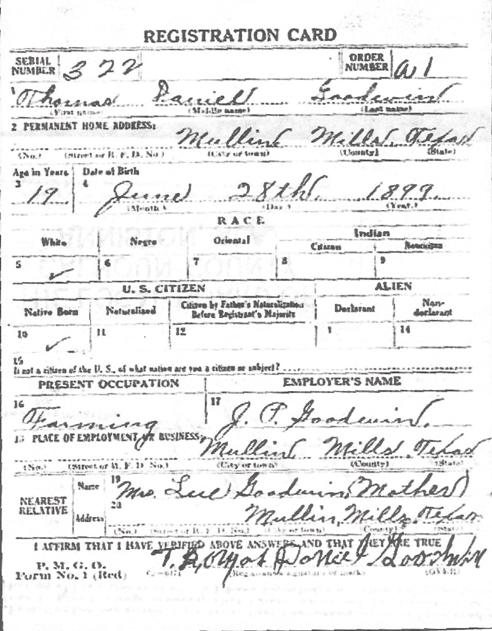 REGISTRATION CARD
SERIAL NUMBER 322 ORDER NUMBER a1
1 Thomas Daniel Goodwin
(First name) (Middle name) (Last name)
2 PERMANENT HOME ADDRESS:
Mullin Mills Texas
(No.) (Street or R. F. D. No.) (City or town) (County) (State)
Age in Years Date of Birth
3 4
19 June 28th 1899
(Month) (Day) (Year)
RACE
White Negro Oriental Indian
Citizen Noncitizen
5 ✓ 6 7 8 9
U. S. CITIZEN ALIEN
Native Born Naturalized Citizen by Father's Naturalization Before Registrant's Majority Declarant Non-declarant
10 ✓ 11 12 1 14
15
If not a citizen of the U. S., of what nation are you a citizen or subject?
PRESENT OCCUPATION EMPLOYER'S NAME
16 17
Farming J. P. Goodwin
PLACE OF EMPLOYMENT OR BUSINESS:
Mullin Mills Texas
(No.) (Street or R. F. D. No.) (City or town) (County) (State)
NEAREST RELATIVE
Name 19 Mrs. Lue Goodwin (Mother)
Address 20 Mullin, Mills Texas
(No.) (Street or R. F. D. No.) (City or town) (County) (State)
I AFFIRM THAT I HAVE VERIFIED ABOVE ANSWERS AND THAT THEY ARE TRUE
P. M. G. O.
Form No. 1 (Red) Thomas Daniel Goodwin
(Registrant's signature or mark) (OVER)